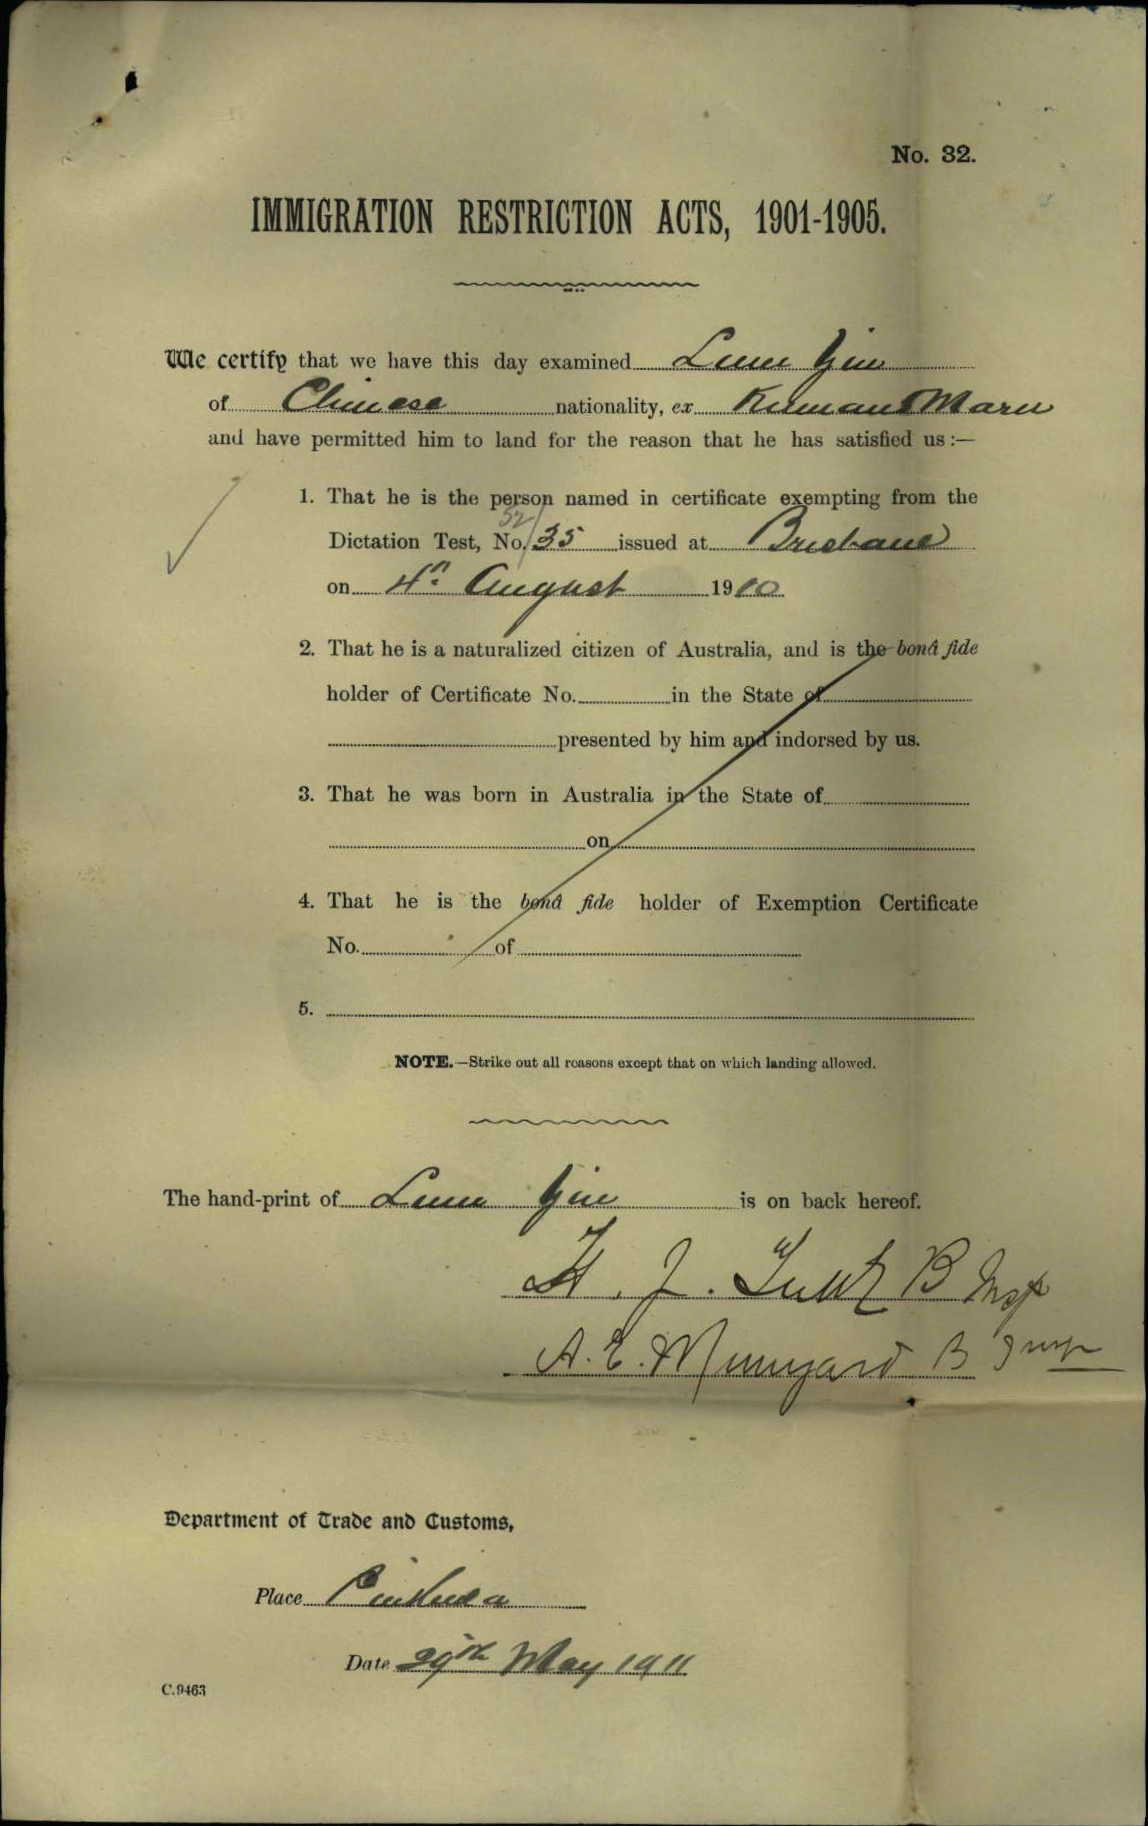 No. 32.
IMMIGRATION RESTRICTION ACTS, 1901-1905.
We certify that we have this day examined Lum Yim
of Chinese nationality, ex Kumano Maru
and have permitted him to land for the reason that he has satisfied us:—
1. That he is the person named in certificate exempting from the
52/
Dictation Test, No. 35 issued at Brisbane
on 4th August 1910
2. That he is a naturalized citizen of Australia, and is the bonâ fide
holder of Certificate No. in the State of
presented by him and indorsed by us.
3. That he was born in Australia in the State of
on
4. That he is the bonâ fide holder of Exemption Certificate
No. of
5.
NOTE.—Strike out all reasons except that on which landing allowed.
The hand-print of Lum Yim is on back hereof.
H. J. B Insp
A. E. B Insp
Department of Trade and Customs,
Place Pinkenba
Date 29th May 1911
C.9463